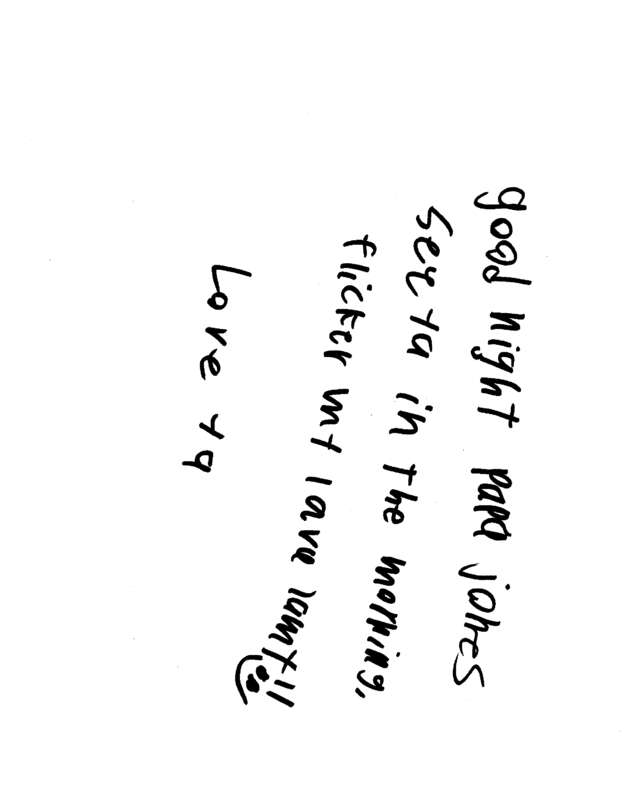 good night papa johes
see ya in the morning,
flicker my lave lamp!!
Love ya